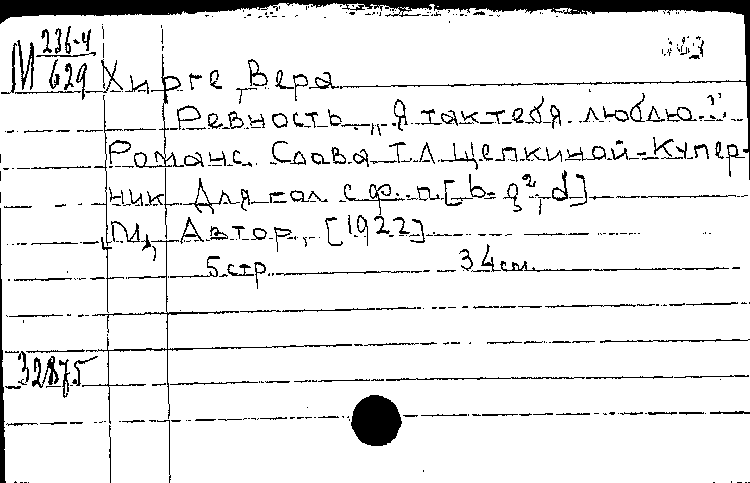 М 236-4
629
Хирге, Вера
Ревность. „Я так тебя люблю..."
Романс. Слова Т.Л. Щепкиной-Купер-
ник Для гол. с ф.-п. [b-g², d]
[М], Автор, [1922]
5 стр. 34 см.
32875